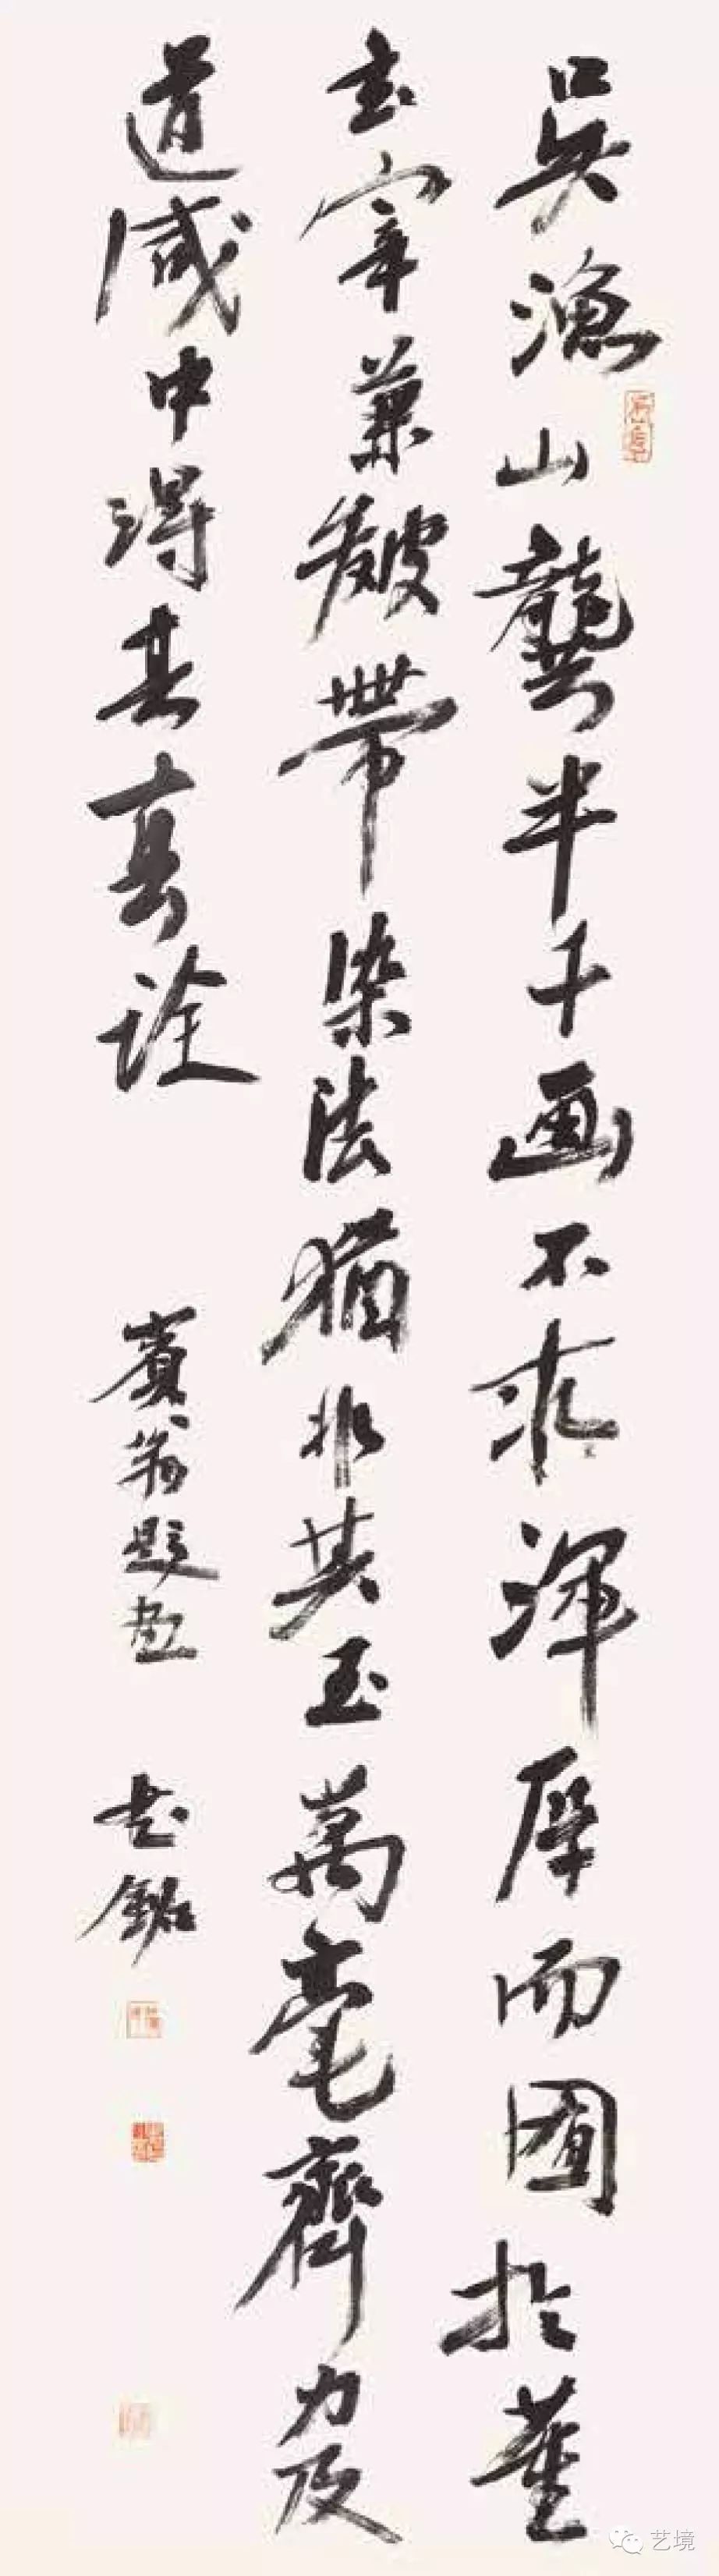 吳漁山龔半千画不求渾厚而囿於董
玄宰兼皴帶染法猶非其至萬毫齊力及
道咸中得其真詮
賓翁題畫
艺境